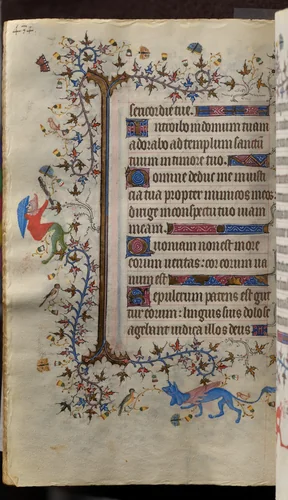 sericordie tue.
Introibo in domum tuam
adorabo ad templum sanctū
tuum in timore tuo.
Domine deduc me in iusti
cia tua propter inimicos meos
dirige in conspectu tuo uiam
meam.
Quoniam non est in ore
eorum ueritas: cor eorum ua
num est
Sepulcrum patens est gut
tur eorum: linguis suis dolose
agebant iudica illos deus